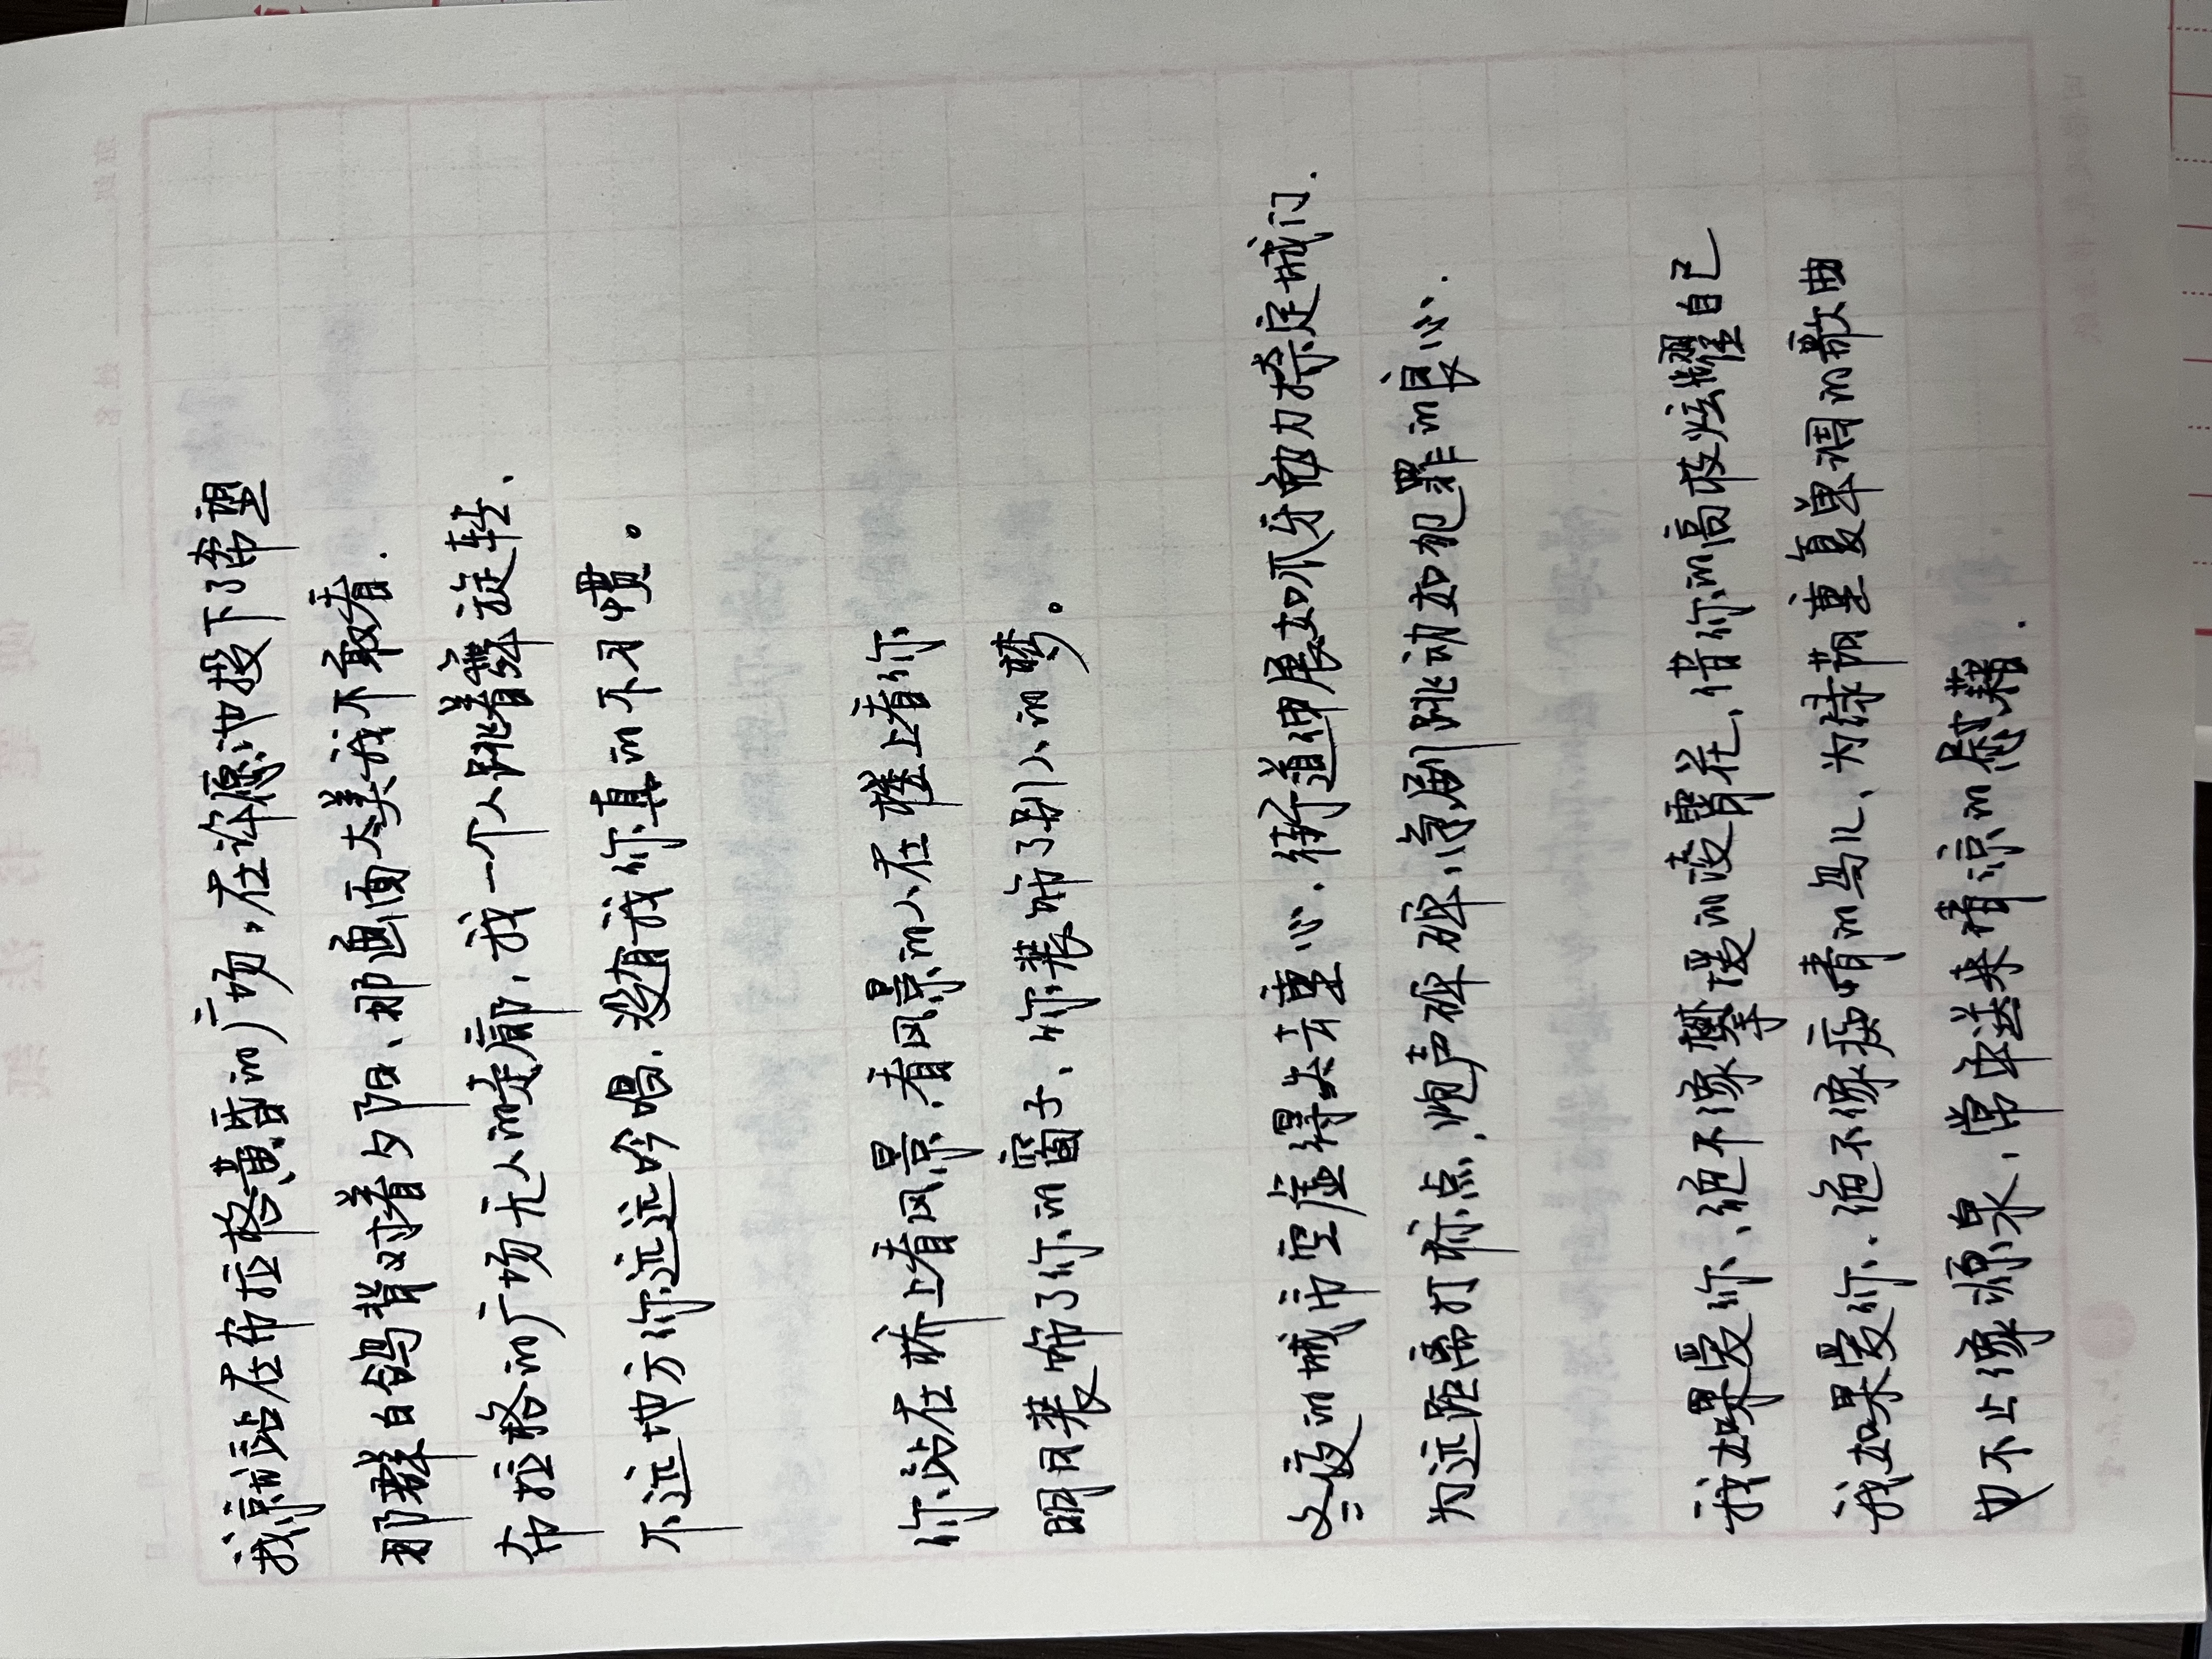 我就站在布拉格黄昏的广场，在许愿池投下了希望
那群白鸽背对着夕阳、那画面太美我不敢看.
布拉格的广场无人的走廊，我一个人跳着舞旋转、
不远地方你远远吟唱.没有我你真的不习惯。
你站在桥上看风景.看风景的人在楼上看你
明月装饰了你的窗子、你装饰了别人的梦。
冬夜的城市空虚得失去重心.街道伸展如爪牙勉力捺定城门.
为远距离打标点，炮声砰砰，急剧跳动如犯罪的良心.
我如果爱你、绝不像攀援的凌霄花、借你的高枝炫耀自己
我如果爱你.绝不像痴情的鸟儿、为绿荫重复单调的歌曲
也不止像源泉、常年送来清凉的慰藉.